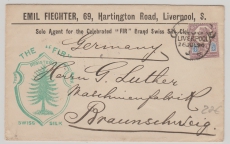 EMIL FIECHTER, 69, Hartington Road, Liverpool, S.
Sole Agent for the Celebrated "FIR" Brand Swiss Silk
Germany
LIVERPOOL
THE "FIR"
Herrn G. Luther
Maschinenfabrik
Braunschweig.
SWISS SILK